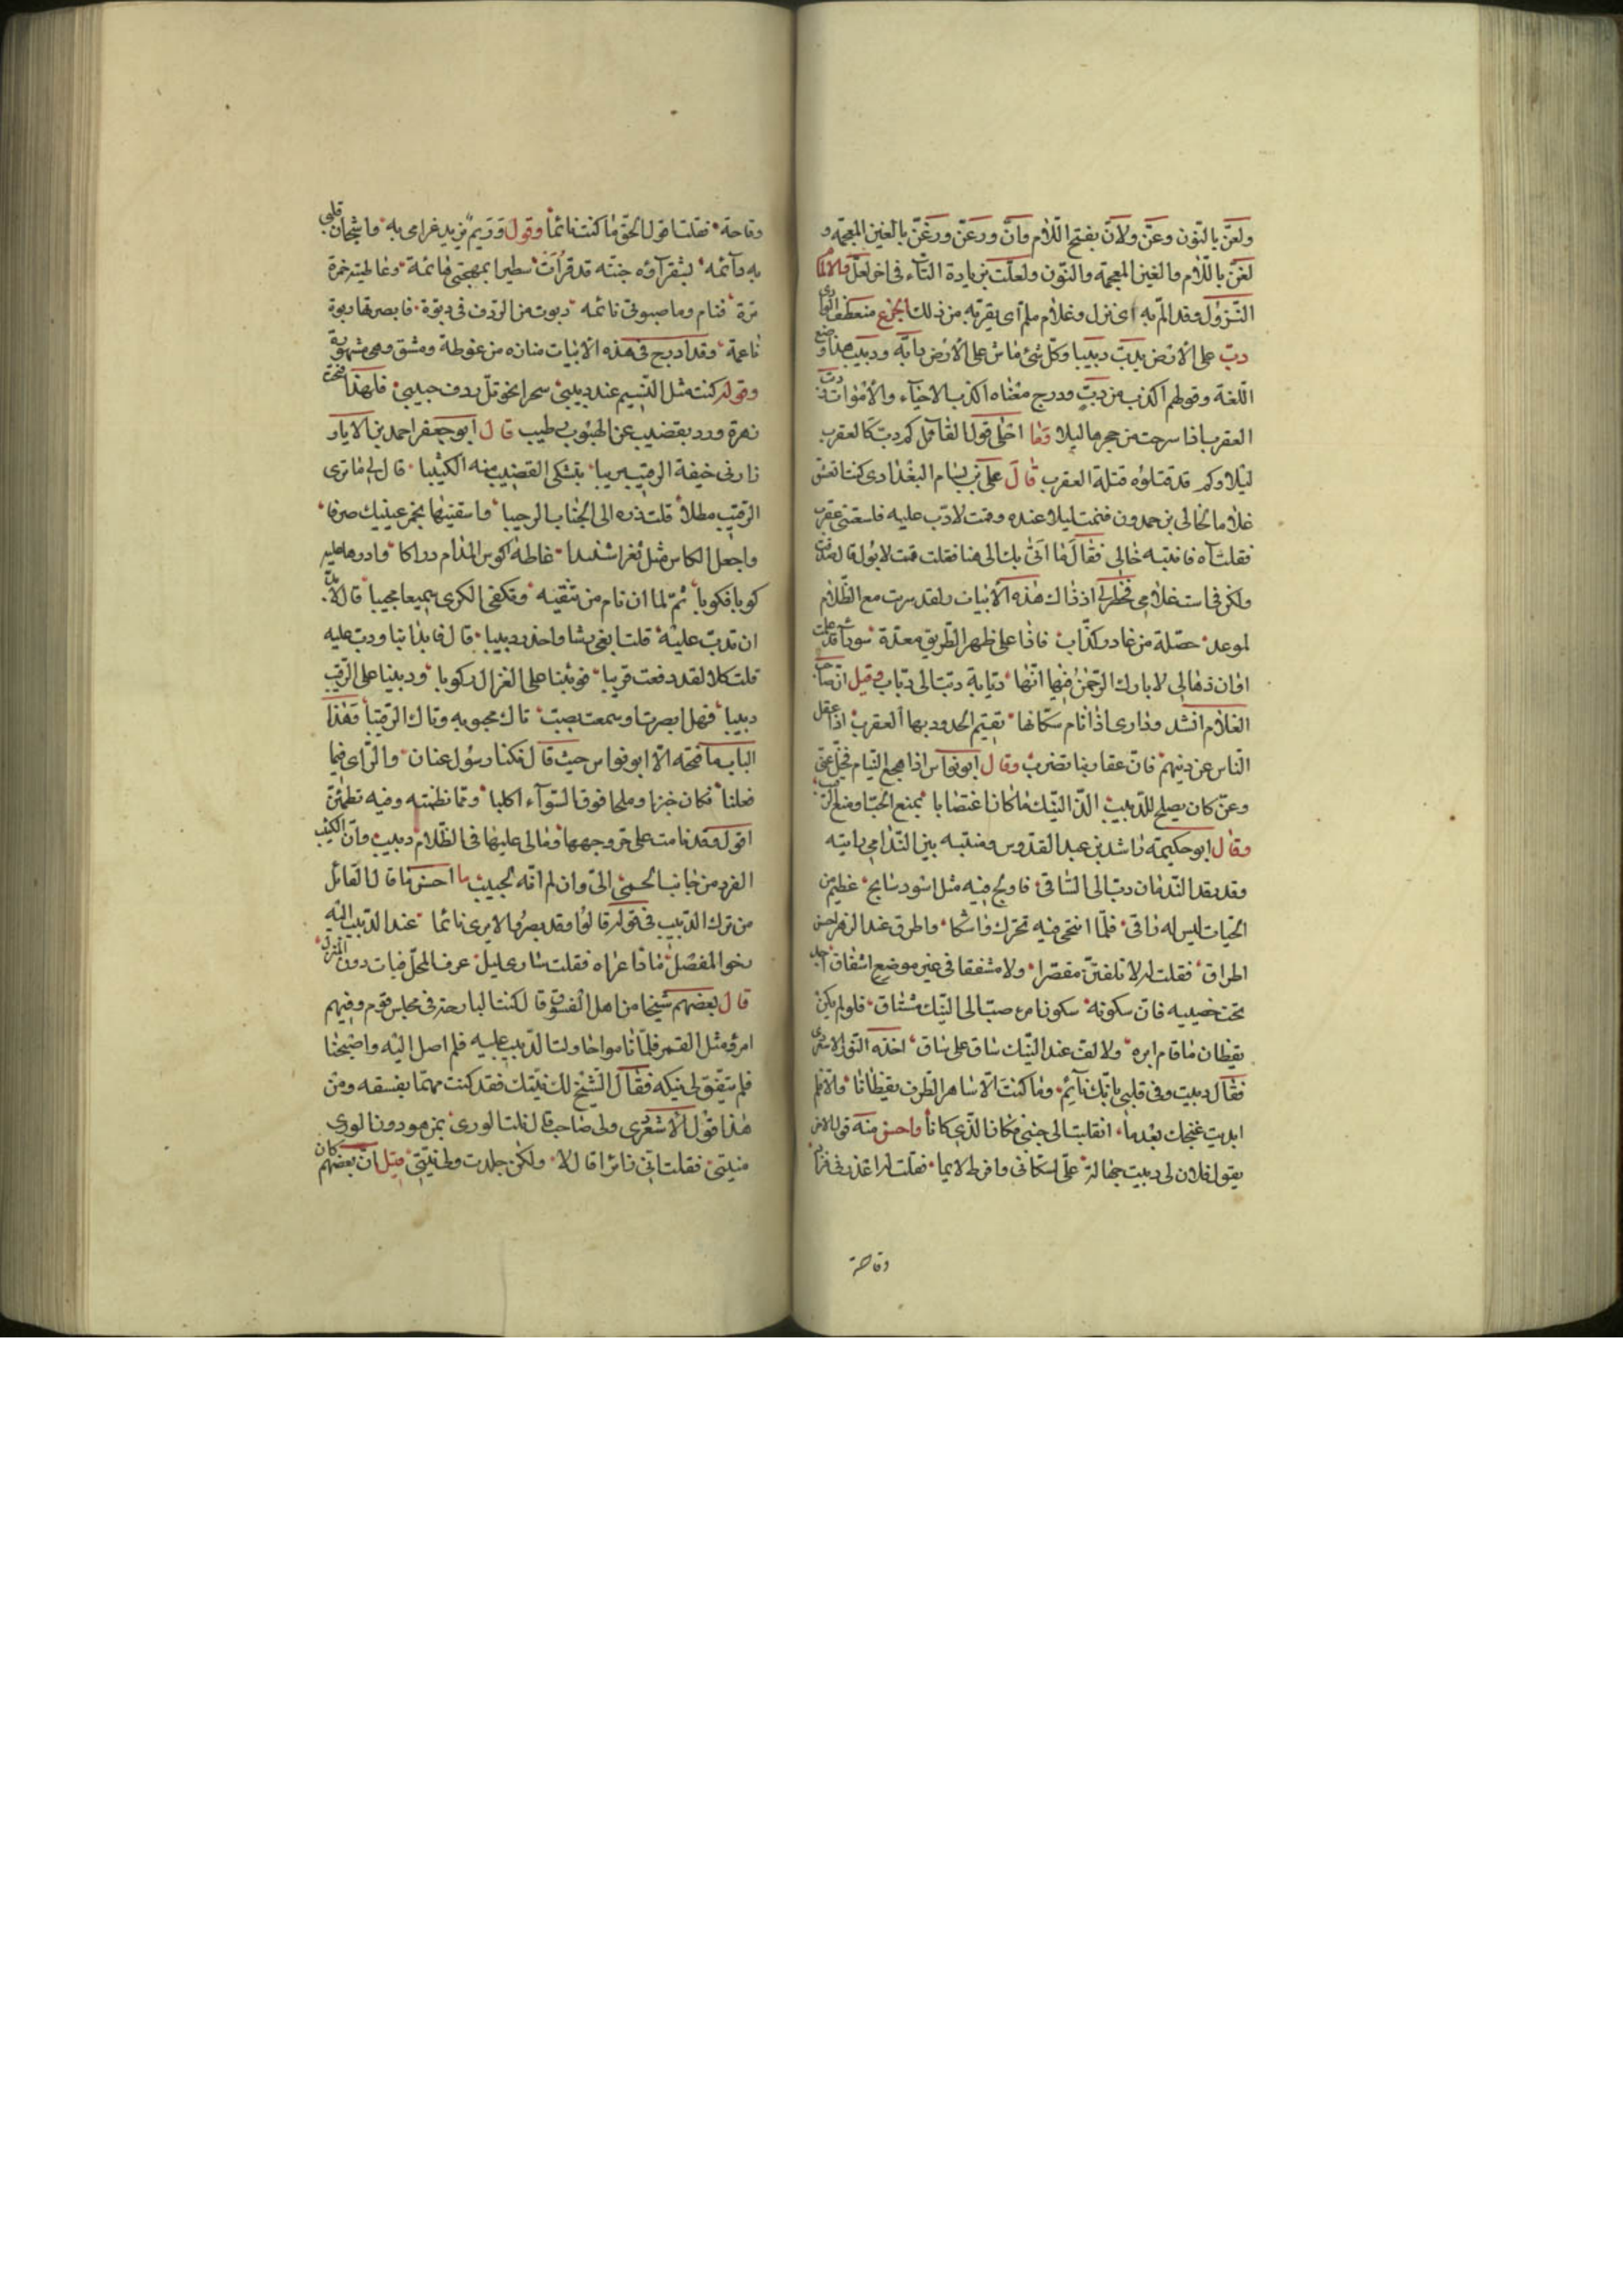 ولعنّ بالنون وعنّ ولأنّ بفتح اللام وأنّ ورعنّ ورغنّ بالغين المعجمة و
لغنّ باللام والغين المعجمة والنون ولعلّت بزيادة التاء في اخر لعلّ والالمام
النزول وقد المّ به اى نزل وغلام ملمّ اى يقربه من ذلك الجزع منعطف الوادى
دبّ على الارض يدبّ دبيبا وكل شئ ماش على الارض دابّة ودبيب هذا وضع
اللغة وقولهم اكذب من دبّ ودرج معناه اكذب الاحياء والاموات دبّت
العقرب اذا سرحت من حجرها ليلا وما احلى قول القائل كم دبّ كالعقرب
ليلا وكم قد قتلوه قتلة العقرب قال على بن بسام البغدادى كنت اتعشق
غلاما لخالى بن حمدون فنمت ليلا عنده وقمت لادبّ عليه فلسعتنى عقرب
فقلت آه فانتبه خالى فقال ما اتى بك الى هنا فقلت قمت لابول قال صدقت
ولكن فى است غلامى فخطر لى اذ ذاك هذه الابيات ولقد سريت مع الظلام
لموعد حصّلة من غادر كذّاب فاذا على ظهر الطريق معدّة سوداء قد علمت
اوان ذهابى لا بارك الرحمن فيها انها دبّابة دبّت الى دبّاب وقيل ان صاحب
الغلام انشد ودارى اذا نام سكانها تقيم الحدود بها العقرب اذا غفل
الناس عن دينهم فان عقاربنا تضرب وقال ابو نواس اذا هجع النيام فخلّ عنى
وعن كان يصلح للدبيب الذّ النيك ما كان اغتصابا بمنع الحبّ او منع الرقيب
وقال ابو حكيمة راشد بن عبد القدوس ومنتبه بين الندامى رايته
وقد رقد الندمان دبّ الى الساقى فاولج فيه مثل اسود سابح عظيم من
الحيات ليس له راقى فلما انتحى فيه تحرك واشكا واطرق عند الرهز احسن
اطراق فقلت له لا تلفتنّ مقصرا ولا مشفقا فى غير موضع اشفاق
تحت خصييه فان سكونه سكونا من صبّ الى النيك مشتاق فلو لم يكن
يقظان ما قام ايره ولا لفّ عند النيك ساق على ساق اخذه النور الاسعردى
فقال دببت وفى قلبى بانك نائم وما كنت الا ساهر الطرف يقظانا والا فلم
ابديت غنجك بعدما انقلبت الى جنبى مكان الذى كانا واحسن منه قول الاخر
يقول فلان لى دببت جهالة علىّ لسكانى وافرط لايما فقلت له اعذرنى
وقاحة
وقاحة فقلت اقول الحق ما كنت نائما وقول وريم مزيد غرامى به واشجان قلبى
به دائمه لبشقراؤه جنته قد قرأت سطيرا بمهجتى قائمة وعاطيته خمرة
مرّة فنام وما صبوتى نائمه ربوت من الردف فى ربوة فابصرتها ربوة
ناعمة وقد ادبج فى هذه الابيات منازه من غوطة دمشق وهى مشهورة
وقوله كنت مثل النسيم عند دبيبى سحرا نحو تلّ ردف حبيبى فلهذا فتحت
زهرة ورد بقضيب عن الهبوب بطيب قال ابو جعفر احمد بن الابار
زارنى خيفة الرقيب مريبا يتشكى القضيب منه الكثيبا قال لى ما ترى
الرقيب مطلا قلت ذره الى الجناب الرحيبا واسقنيها بخمر عينيك صرفا
واجعل الكاس مثل ثغرا شنبا عاطه اكوس المدام دراكا وادرها عليه
كوبا فكوبا ثم لما ان نام من نتقيه وتكفى الكرى سميعا مجيبا قال لابدّ
ان تدبّ عليه قلت ابغى رشا واحذر دبيبا قال فابدا بنا ودبّ عليه
قلت كلا لقد دفعت قريبا فوثبنا على الغزال ركوبا ودببنا على الرقيب
دبيبا فهل ابصرت او سمعت بصبّ ناك محبوبه وناك الرقيبا وهذا
الباب ما فتحه الا ابو نواس حيث قال فكنا رسول عنان والراى فيما
فعلنا فكان خبزا وملحا فوق السّواء اكلبا ومما نظمته وفيه تطمئنّ
اقول وقد نامت على حرّ وجهها ومالى عليها فى الظلام دبيب وان الكثيب
الفرد من جانب الحمى الىّ وان لم اته لحبيب ما احسن ما قال القائل
من ترك الدبيب فى قوله قالوا وقد بصروا لايرى نائما عند الدبيب اليه
نحو المفصل ماذا عراه فقلت سارى عليل عرف المحلّ فبات دون المنزل
قال بعضهم شيخا من اهل الفسوق قال كنت البارحة فى مجلس قوم وفيهم
امرؤ مثل القمر فلما ناموا حاولت الدبيب عليه فلم اصل اليه واصبحنا
فلم يتفق لى نيكه فقال الشيخ لك نيتك فقد كنت مهتما بفسقه ومن
هذا قول الاسعردى ولى صاحب قال نلت الورى بمن هو دون الورى
منيتى فقلت اتى زائرا قال لا ولكن جلدت ولى نيتى قيل ان بعضهم كان